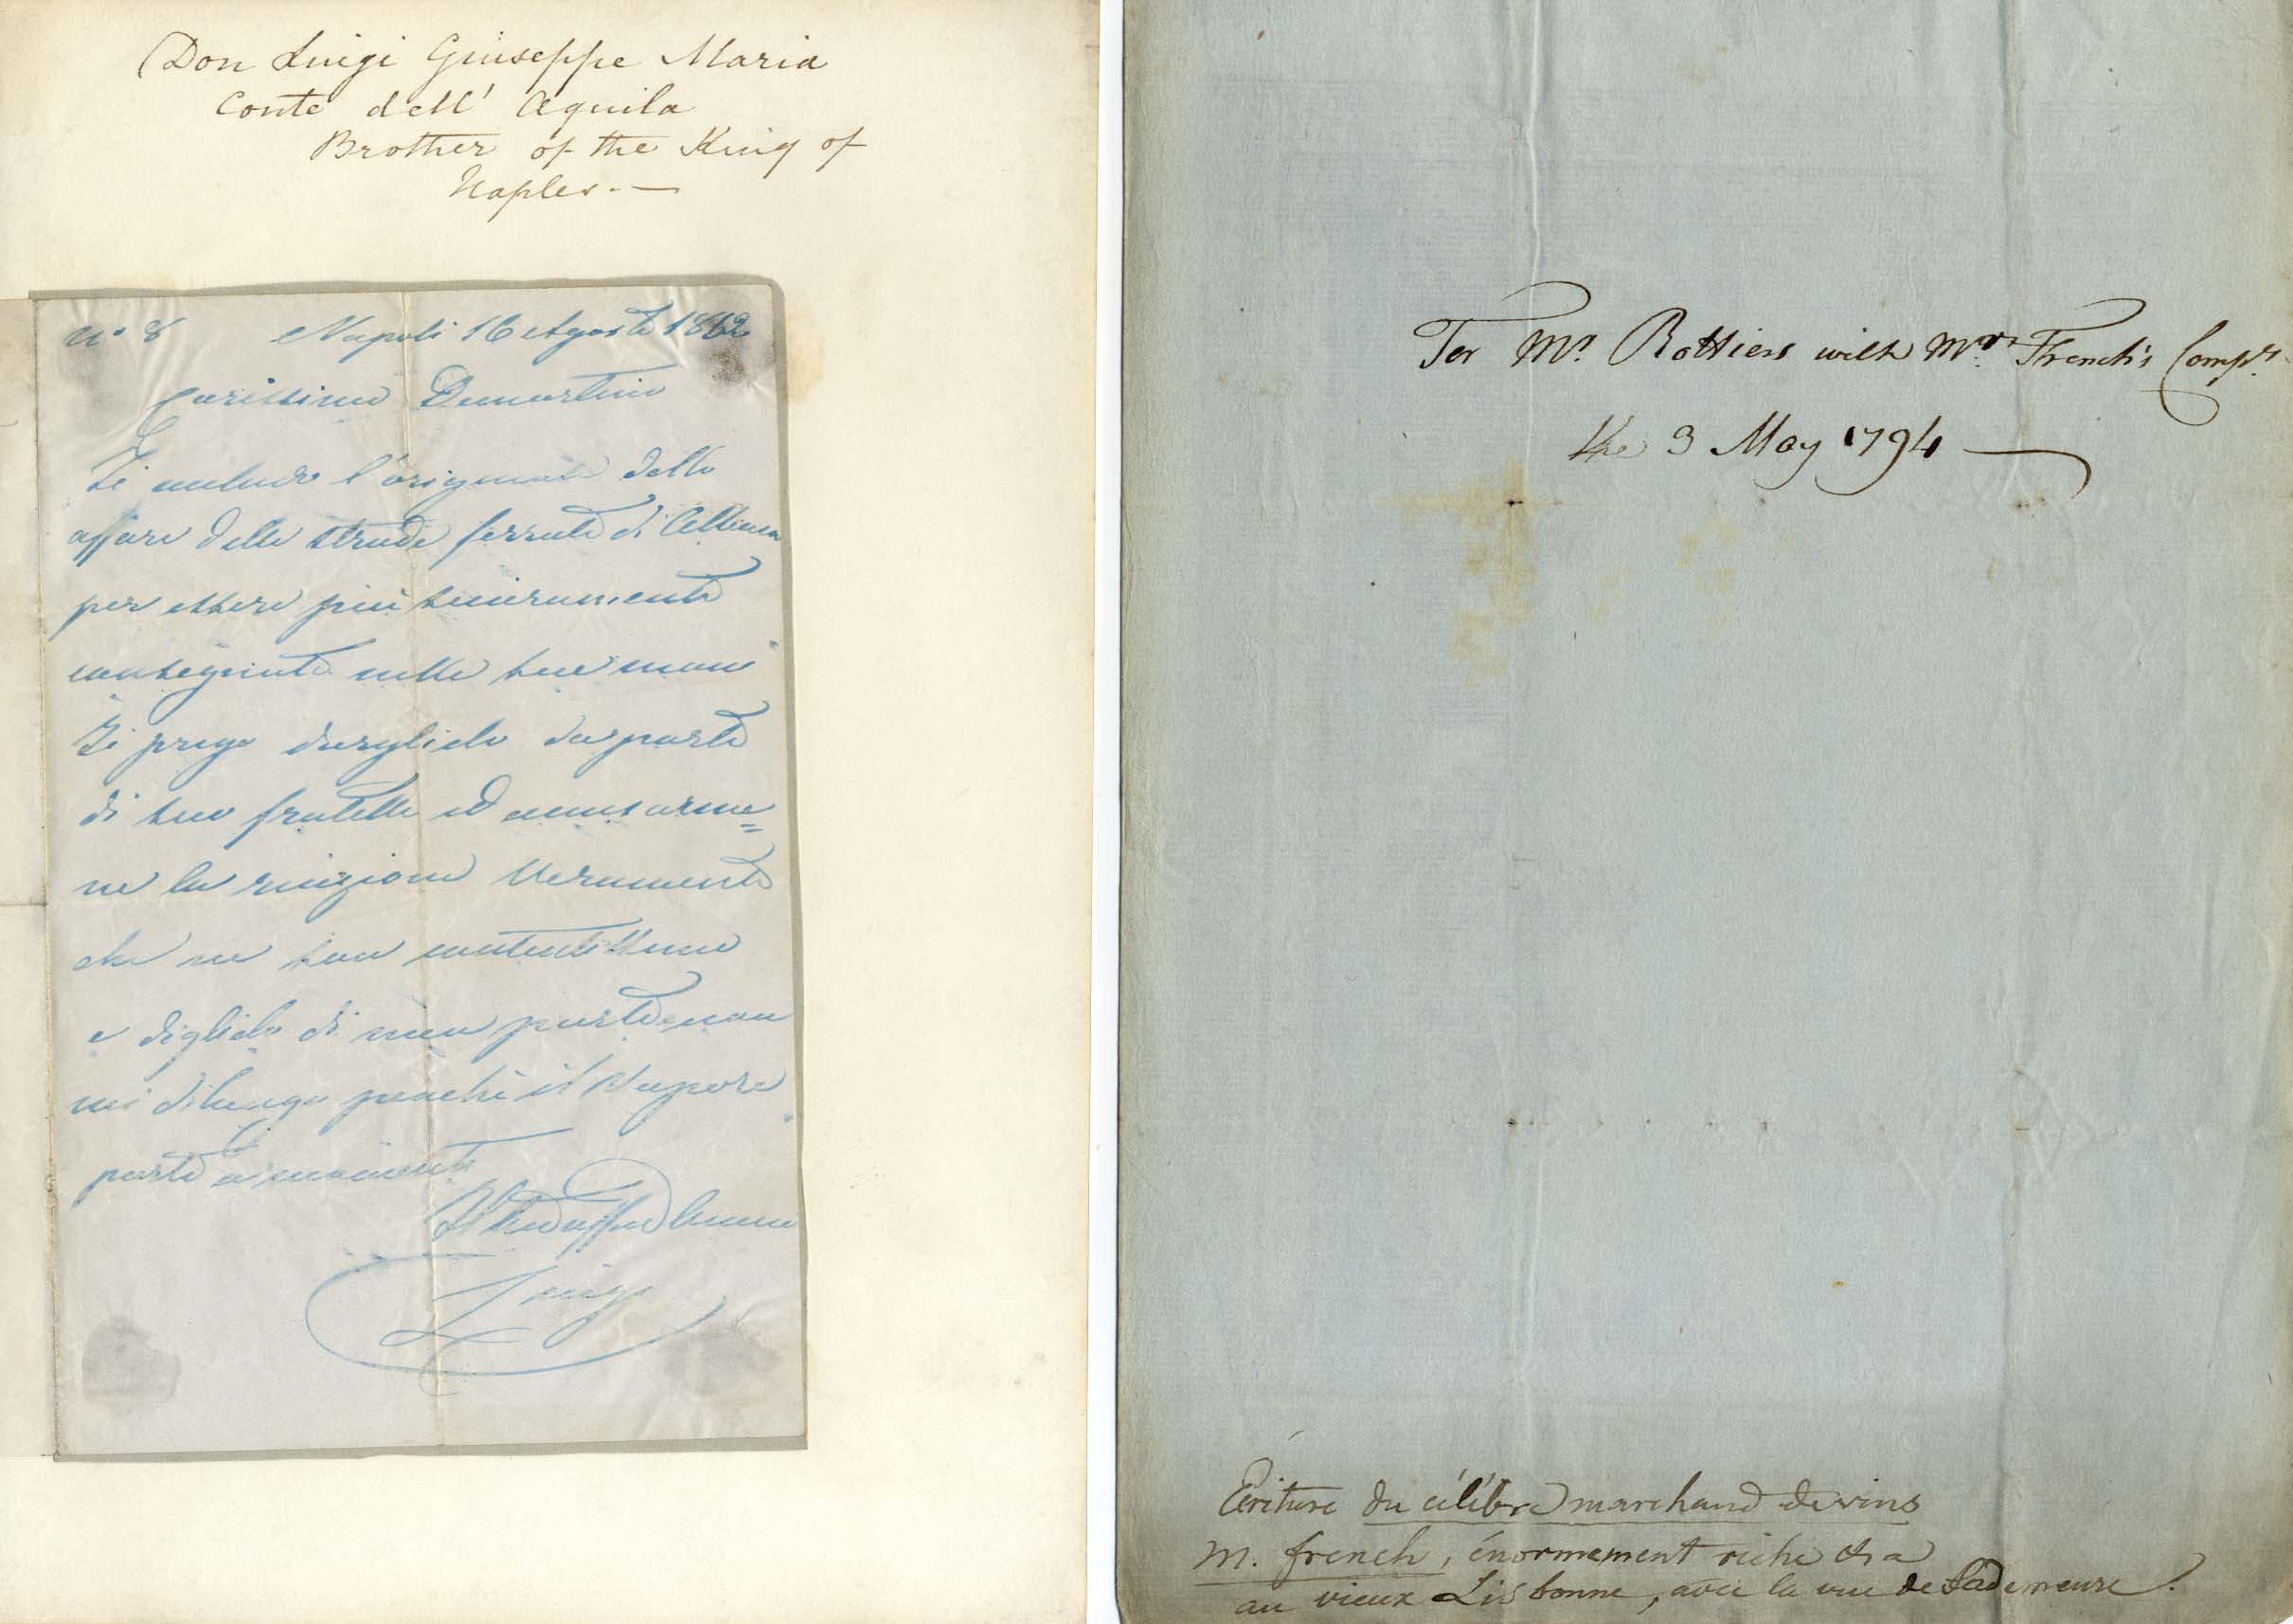 Don Luigi Giuseppe Maria
Conte dell' Aquila
Brother of the King of
Naples. —
No 8 Napoli 16 Agosto 1862
Carissimo Demartino
Ti l'originale dello
affare delle strade ferrate di
per essere più sicuramente
consegnate nelle tue mani
Ti prego darglielo da parte
di suo fratello ed accusarme=
ne la ricezione Veramente
che ne son contentissimo
e diglielo di mia parte non
mi dilungo perchè il Vapore
parte a momenti
Luigi
For Mr. Rottiers with Mrs. French's Compts.
the 3 May 1794 —
Ecriture du célèbre marchand de vins
M. french, énormement riche
au vieux Lisbonne, avec la vue de Sa demeure.